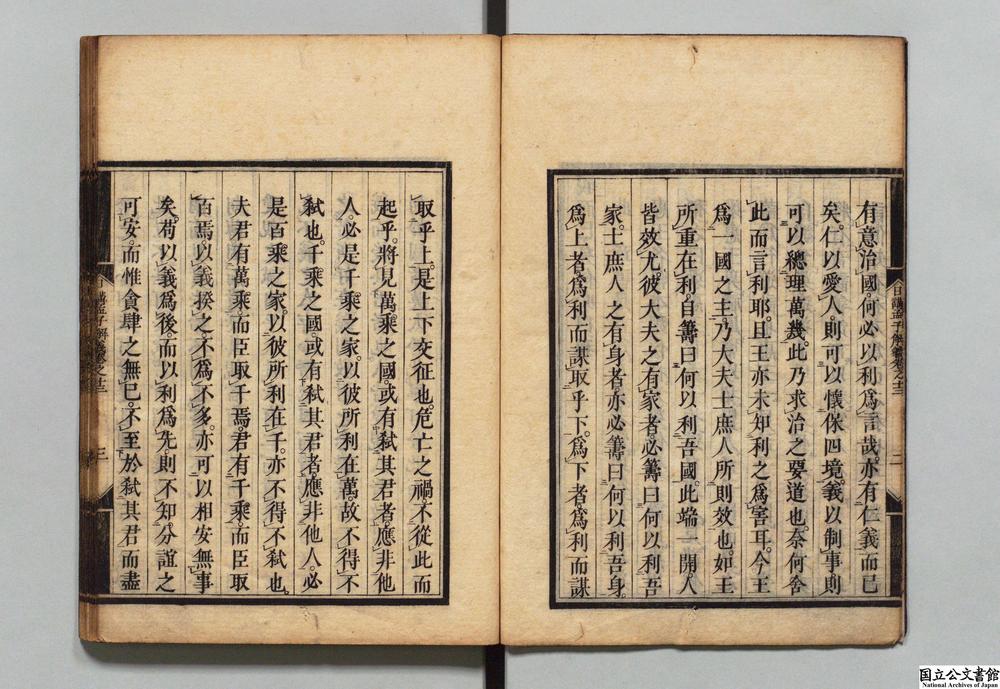 有意治國。何必以利爲言哉。亦有仁義而已
矣。仁以愛人。則可以懷保四境。義以制事。則
可以總理萬幾。此乃求治之要道也。奈何舍
此而言利耶。且王亦未知利之爲害耳。今王
爲一國之主。乃大夫士庶人所則效也。如王
所重在利。自籌曰。何以利吾國。此端一開。人
皆效尤。彼大夫之有家者。必籌曰。何以利吾
家。士庶人之有身者。亦必籌曰。何以利吾身。
爲上者。爲利而謀取乎下。爲下者。爲利而謀
日講孟子解義卷之十三 二
取乎上。是上下交征也。危亡之禍。不從此而
起乎。將見萬乘之國。或有弑其君者。應非他
人。必是千乘之家。以彼所利在萬。故不得不
弑也。千乘之國。或有弑其君者。應非他人。必
是百乘之家。以彼所利在千。亦不得不弑也。
夫君有萬乘。而臣取千焉。君有千乘。而臣取
百焉。以義揆之。不爲不多。亦可以相安無事
矣。苟以義爲後。而以利爲先。則不知分誼之
可安。而惟貪肆之無已。不至於弑其君而盡
日講孟子解義卷之十三 三
国立公文書館
National Archives of Japan